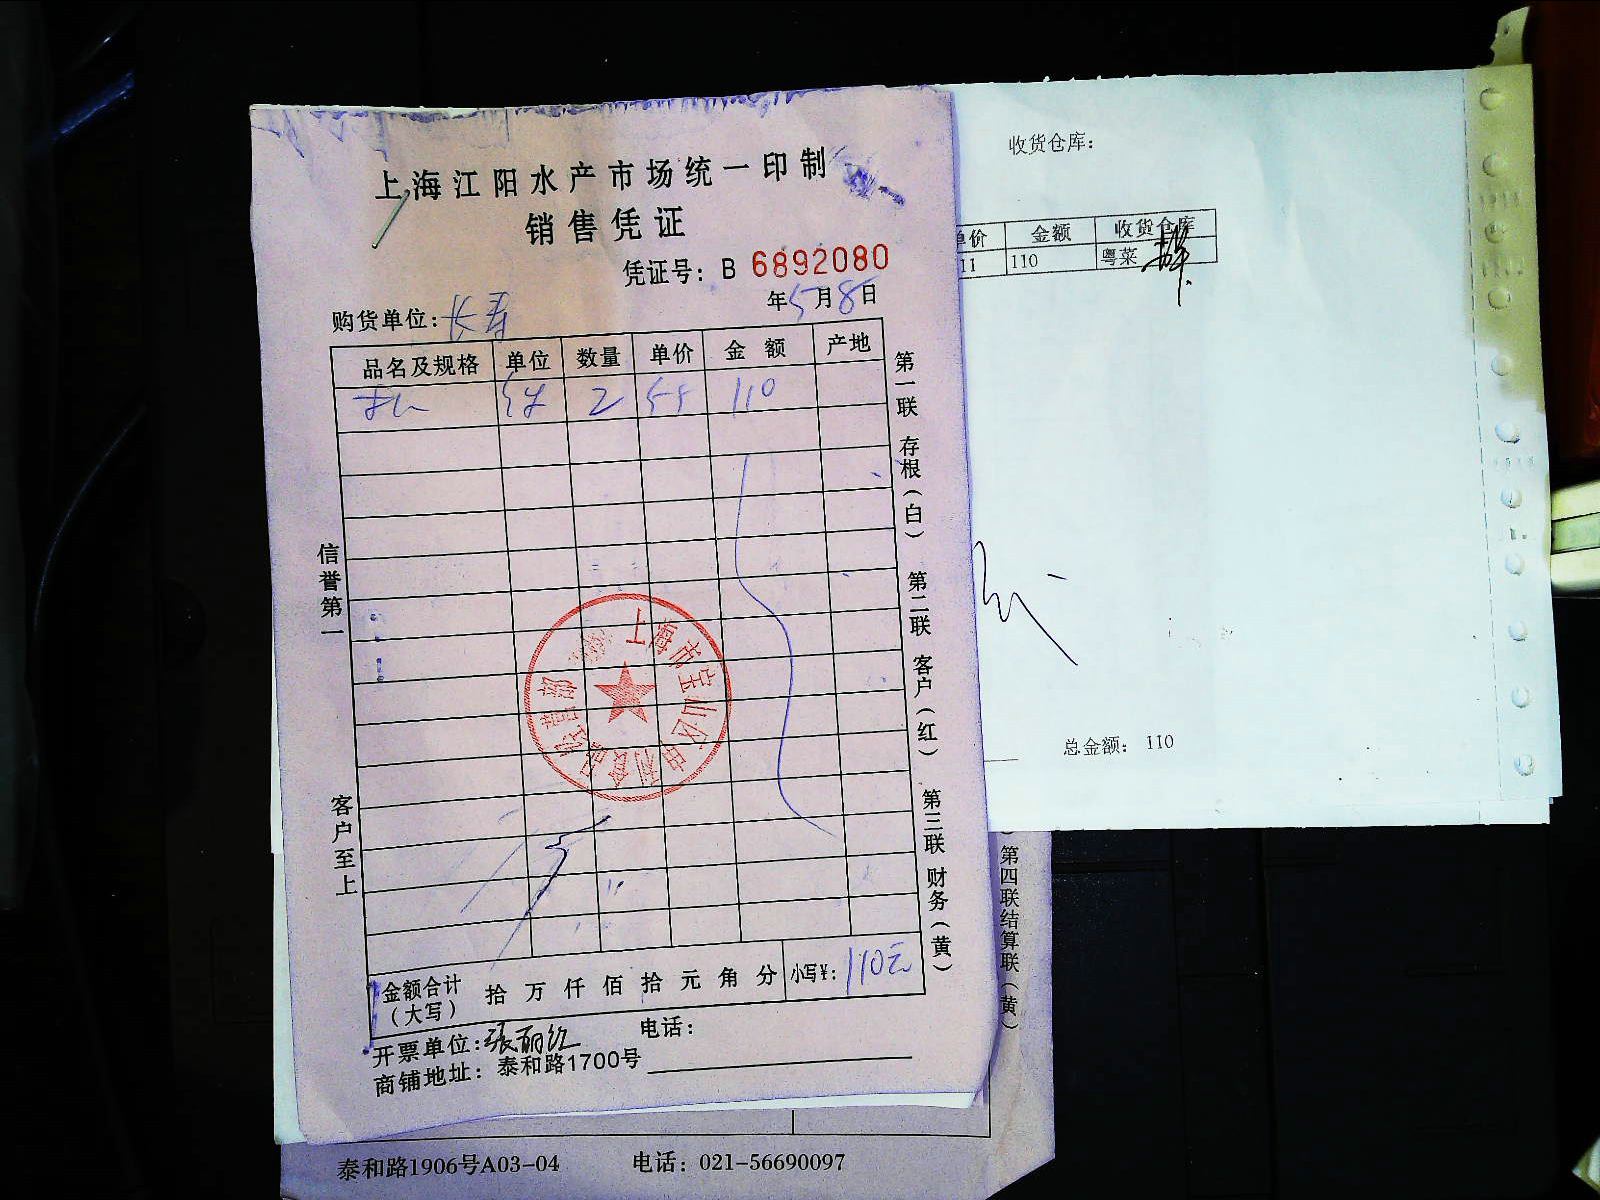 上海江阳水产市场统一印制
销售凭证
凭证号：B 6892080
年5月8日
购货单位：长寿
品名及规格 单位 数量 单价 金额 产地
2 55 110
信誉第一
客户至上
第一联 存根（白） 第二联 客户（红） 第三联 财务（黄）
上海市宝山区 食品经营部
金额合计（大写） 拾 万 仟 佰 拾 元 角 分 小写¥：110元
开票单位：张丽红 电话：
商铺地址：泰和路1700号
收货仓库：
单价 金额 收货仓库
11 110 粤菜
总金额： 110
第四联结算联（黄）
泰和路1906号A03-04 电话：021-56690097